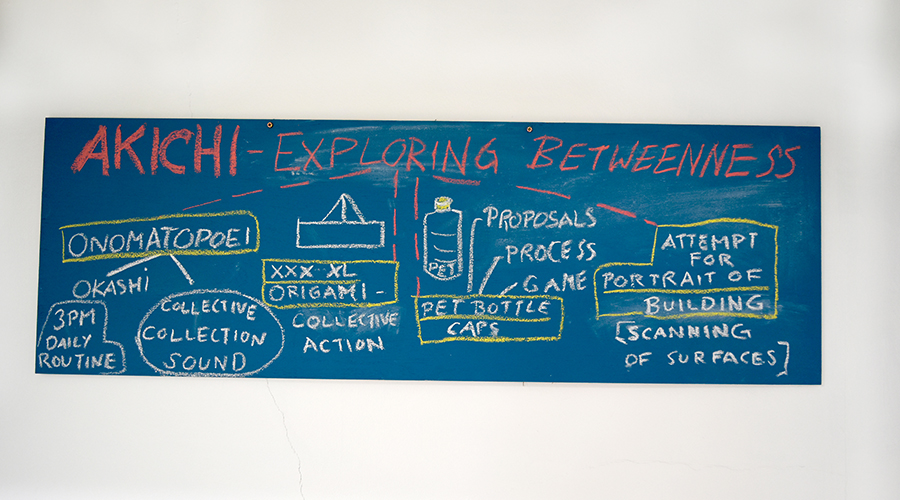 AKICHI - EXPLORING BETWEENNESS
ONOMATOPOEI
OKASHI
3PM
DAILY
ROUTINE
COLLECTIVE
COLLECTION
SOUND
XXX XL
ORIGAMI -
COLLECTIVE
ACTION
PET
PROPOSALS
PROCESS
GAME
PET BOTTLE
CAPS
ATTEMPT
FOR
PORTRAIT OF
BUILDING
[SCANNING
OF SURFACES]